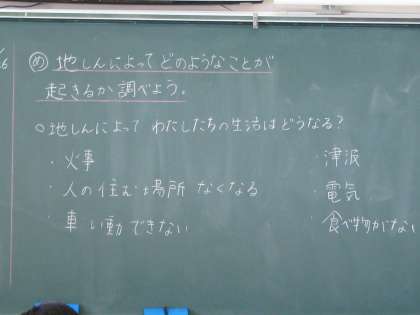 め 地しんによってどのようなことが
起きるか調べよう。
○地しんによって わたしたちの生活はどうなる?
・火事
・人の住む場所 なくなる
・車 い動できない
・津波
・電気
・食べ物がない